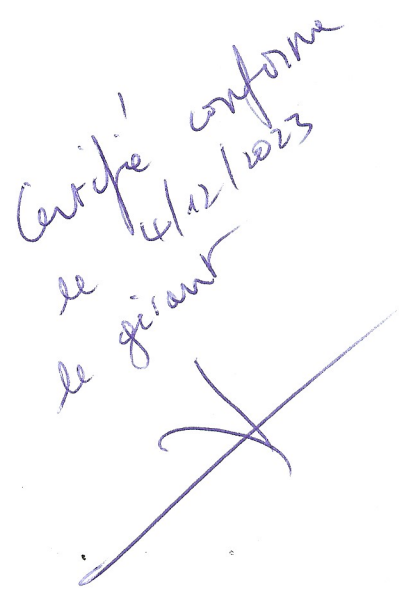 Certifié conforme
le 4/12/2023
le gérant